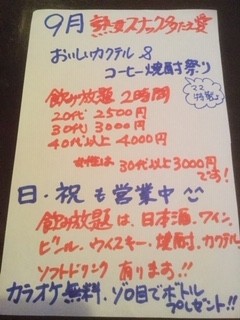 9月 熟女スナックうたた寝
おいしいカクテル &
コーヒー焼酎祭り
ママ
特製♪
飲み放題 2時間
20代 2500円
30代 3000円
40代以上 4000円
女性は 30代以上3000円
です!
日・祝も営業中
飲み放題は、日本酒、ワイン、
ビール・ウィスキー・焼酎、カクテル、
ソフトドリンク 有ります.!!
カラオケ無料、ゾロ目でボトル
プレゼント!!